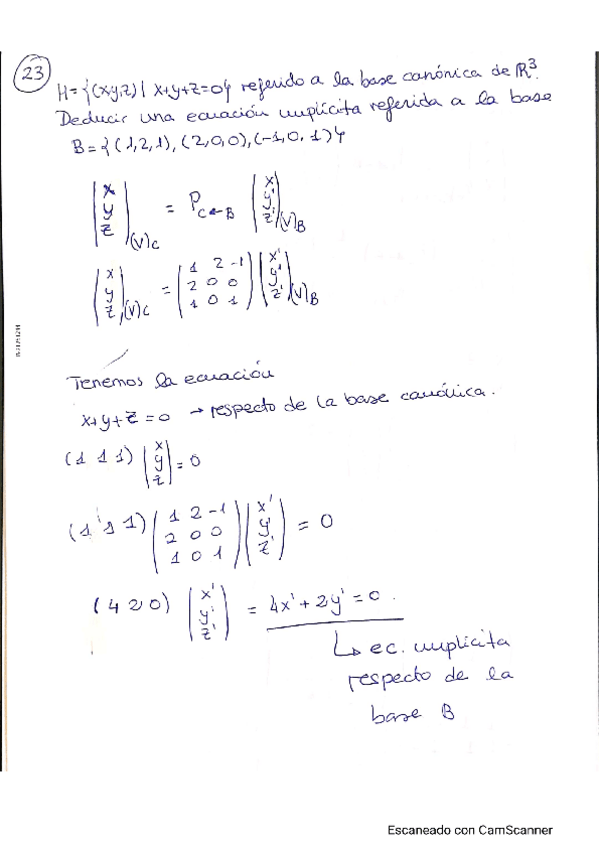 23
H={(x,y,z) | x+y+z=0} referido a la base canónica de ℝ³.
Deducir una ecuación implícita referida a la base
B={(1,2,1), (2,0,0), (-1,0,1)}
(x y z)(V)C = P C←B (x' y' z')(V)B
(x y z)(V)C = (1 2 -1 / 2 0 0 / 1 0 1) (x' y' z')(V)B
Tenemos la ecuación
x+y+z=0 → respecto de la base canónica.
(1 1 1) (x y z) = 0
(1 1 1) (1 2 -1 / 2 0 0 / 1 0 1) (x' y' z') = 0
(4 2 0) (x' y' z') = 4x'+2y'=0.
↳ ec. implícita
respecto de la
base B
Escaneado con CamScanner